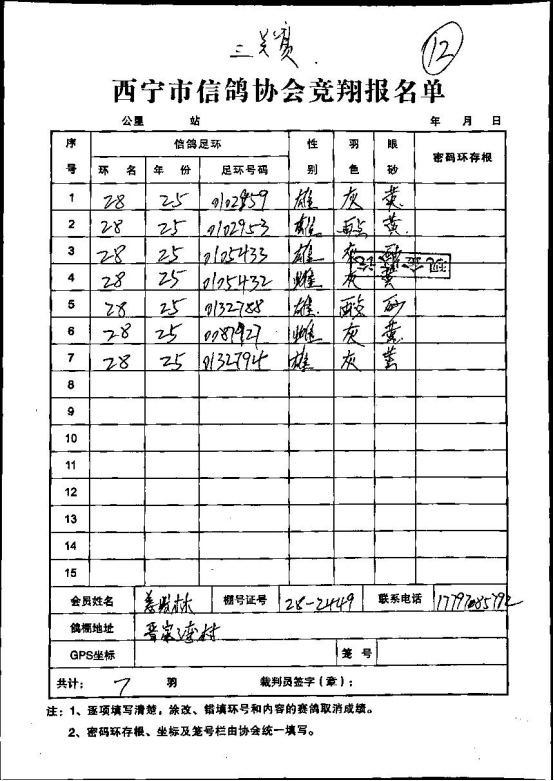 三关赛.
12
西宁市信鸽协会竞翔报名单
公里 站 年 月 日
序号 信鸽足环 性别 羽色 眼砂 密码环存根
环 名 年 份 足环号码
1 28 25 0102959 雄 灰 黄.
2 28 25 0102953 雄 雨点 黄.
3 28 25 0105433 雄 灰
4 28 25 0105432 雌 灰 黄
5 28 25 0132788 雄. 雨点 砂
6 28 25 0087927 雌 灰 黄.
7 28 25 0132794 雄 灰 黄
8
9
10
11
12
13
14
15
会员姓名 林 棚号证号 28-2449 联系电话 17797085792
鸽棚地址 晋家湾村
GPS坐标 笼 号
共计: 7 羽 裁判员签字(章):
注:1、逐项填写清楚,涂改、错填环号和内容的赛鸽取消成绩。
2、密码环存根、坐标及笼号栏由协会统一填写。